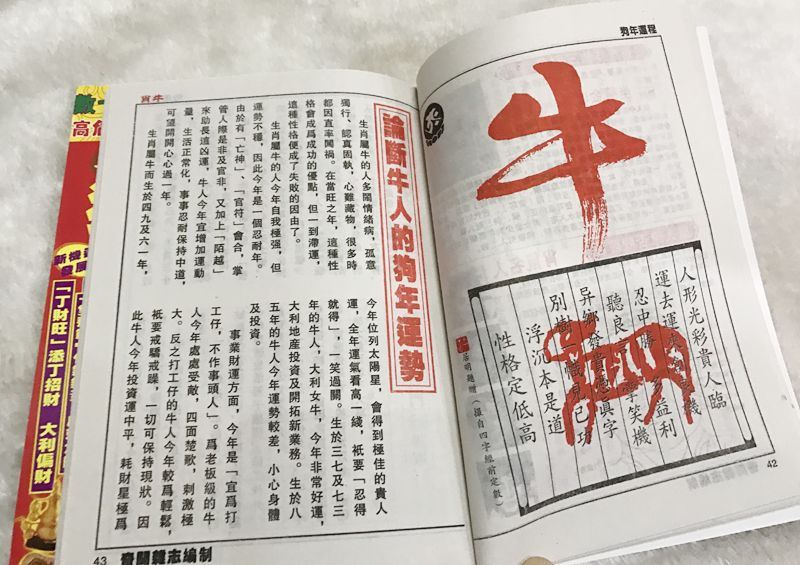 狗年運程
牛
人形光彩貴人臨
運去運
忍中勝 益利
聽良言 笑機
异鄉發貴 真字
別樹 幟見己功
浮沉本是道
性格定低高
居明題贈（擷自四字經前定數）
42
肖牛
論斷牛人的狗年運勢
生肖屬牛的人多鬧情緒病，孤意
獨行、認真固執，心難藏物，很多時
都因直率闖禍。在當旺之年，這種性
格會成爲成功的優點，但一到滯運，
這種性格便成了失敗的因由了。
生肖屬牛的人今年自我極強，但
運勢不穩，因此今年是一個忍耐年。
由於有「亡神」、「官符」會合，掌
管人際是非及官非，又加上「陌越」
來助長這凶運，牛人今年宜增加運動
量，生活正常化，事事忍耐保持中道，
可望開開心心過一年。
生肖屬牛而生於四九及六一年，
今年位列太陽星，會得到極佳的貴人
運，全年運氣看高一綫，衹要「忍得
就得」，一笑過關。生於三七及七三
年的牛人，大利女牛，今年非常好運，
大利地産投資及開拓新業務。生於八
五年的牛人今年運勢較差，小心身體
及投資。
事業財運方面，今年是「宜爲打
工仔，不作事頭人」。爲老板級的牛
人今年處處受敵，四面楚歌，刺激極
大。反之打工仔的牛人今年較爲輕鬆，
衹要戒驕戒躁，一切可保持現狀。因
此牛人今年投資運中平，耗財星極爲
43
奇聞雜志編制
高
新機
發展
「丁財旺」添丁招財
大利偏財